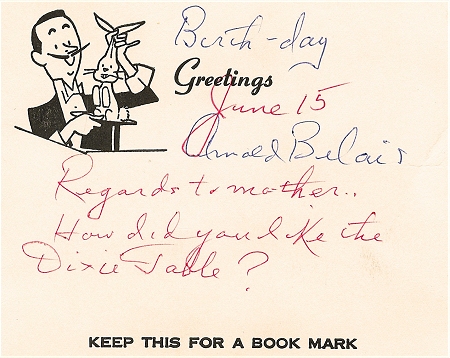 Birth-day
Greetings
June 15
Arnold Belais
Regards to mother..
How did you like the
Dixie Table?
KEEP THIS FOR A BOOK MARK